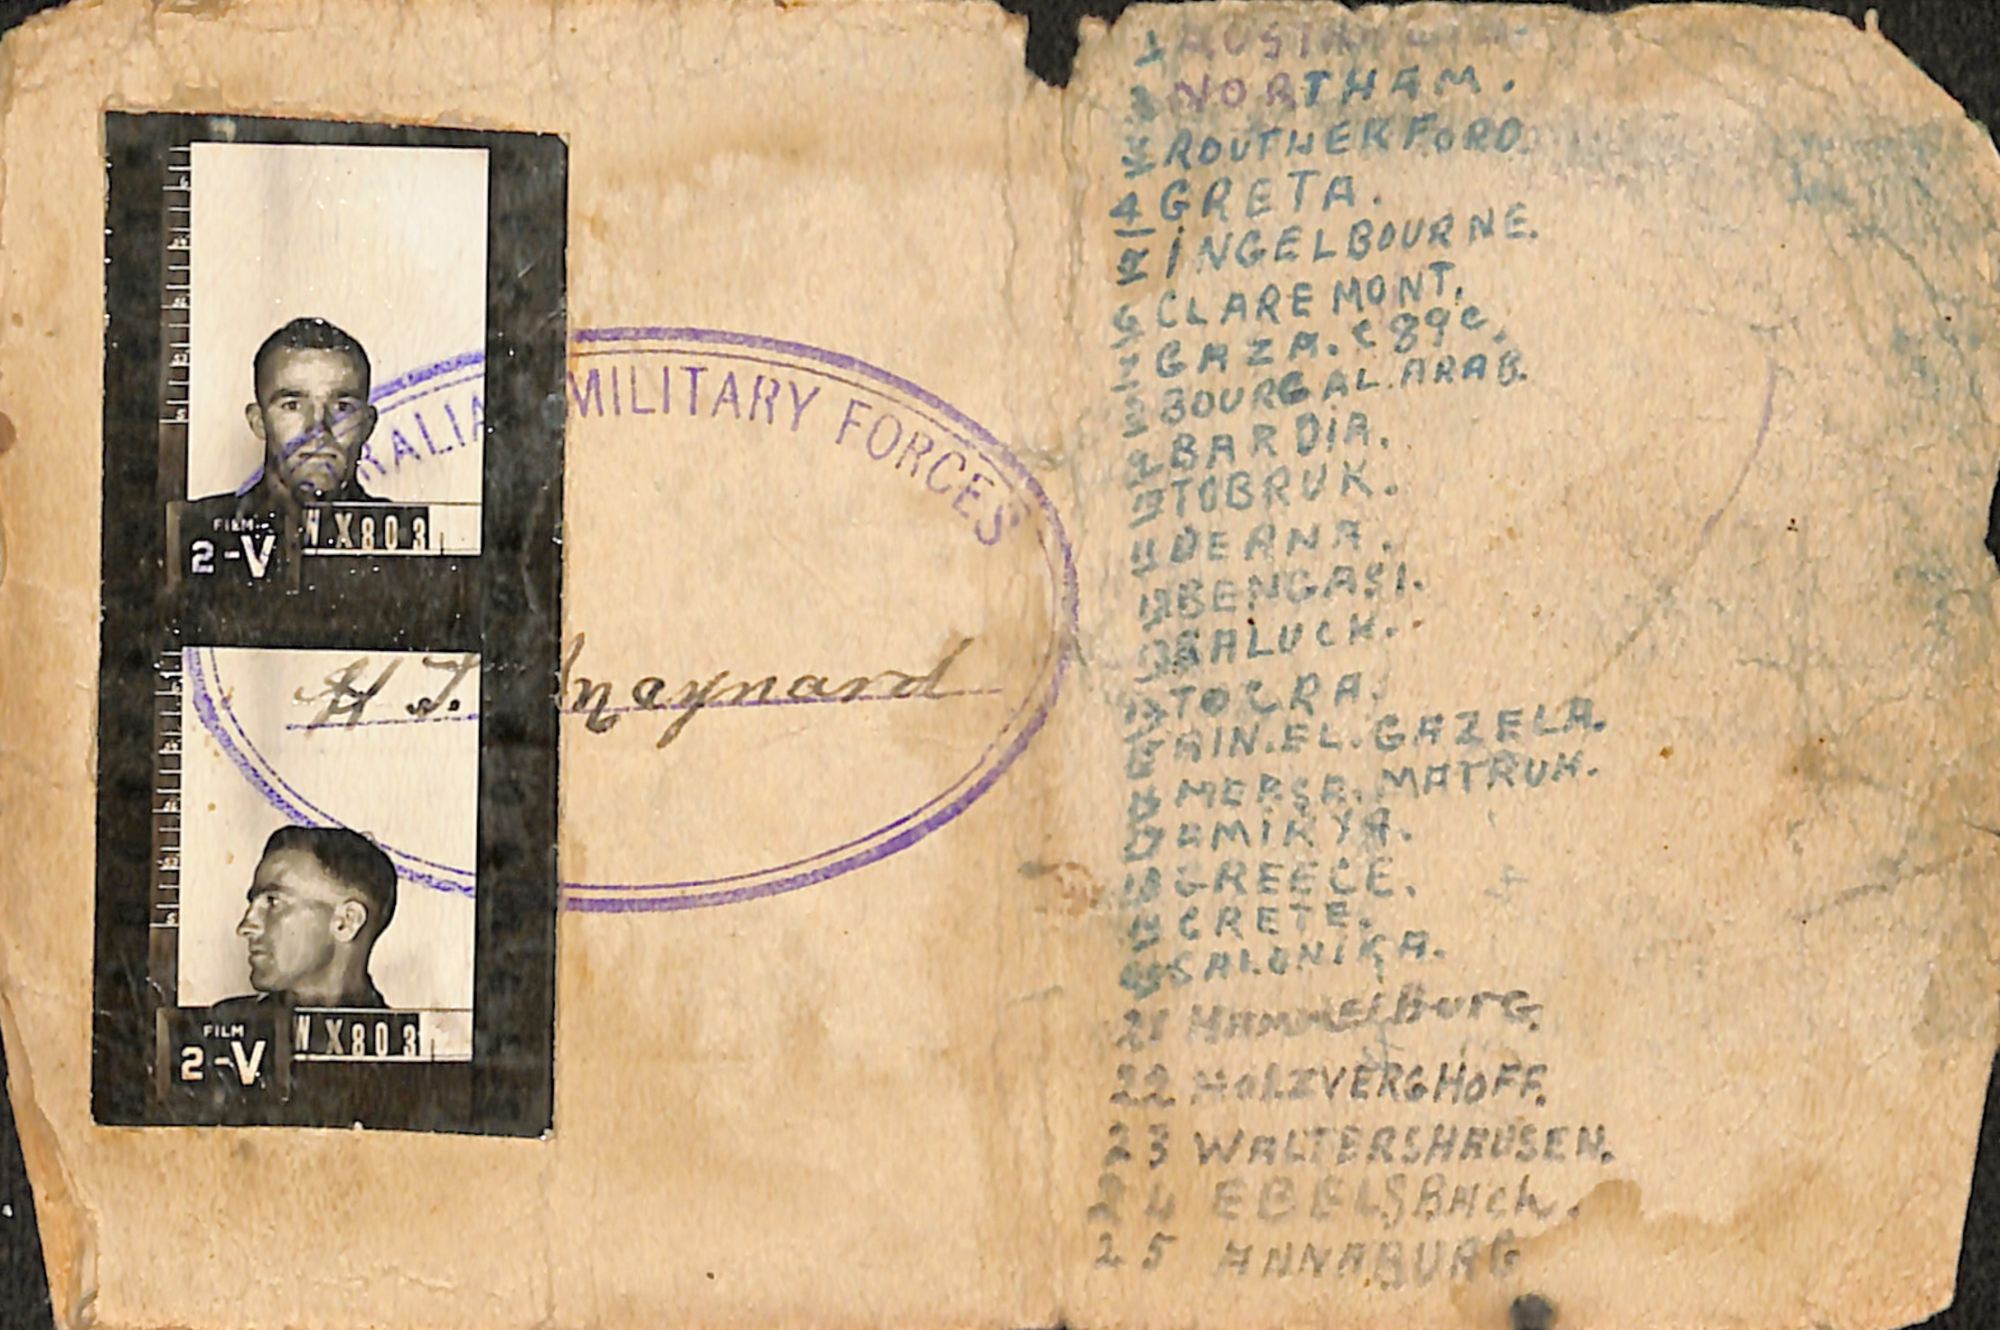 FILM
2-V
WX803
RALIA MILITARY FORCES
H J. Maynard
FILM
2-V
WX803
1 AUSTRALIA.
2 NORTHAM.
3 ROUTHERFORD
4 GRETA.
5 INGELBOURNE.
6 CLAREMONT.
7 GAZA. C89C.
8 BOURG AL. ARAB.
9 BARDIA.
10 TOBRUK.
11 DERNA.
12 BENGASI.
13 SALUCK.
14 TOCRA.
15 AIN. EL. GAZELA.
16 MERSA. MATRUH.
17 AMIRYA.
18 GREECE.
19 CRETE.
20 SALONIKA.
21 HAMMELBURG.
22 HOLZVERGHOFF.
23 WALTERSHAUSEN.
24 EBELSBACh.
25 ANNABURG